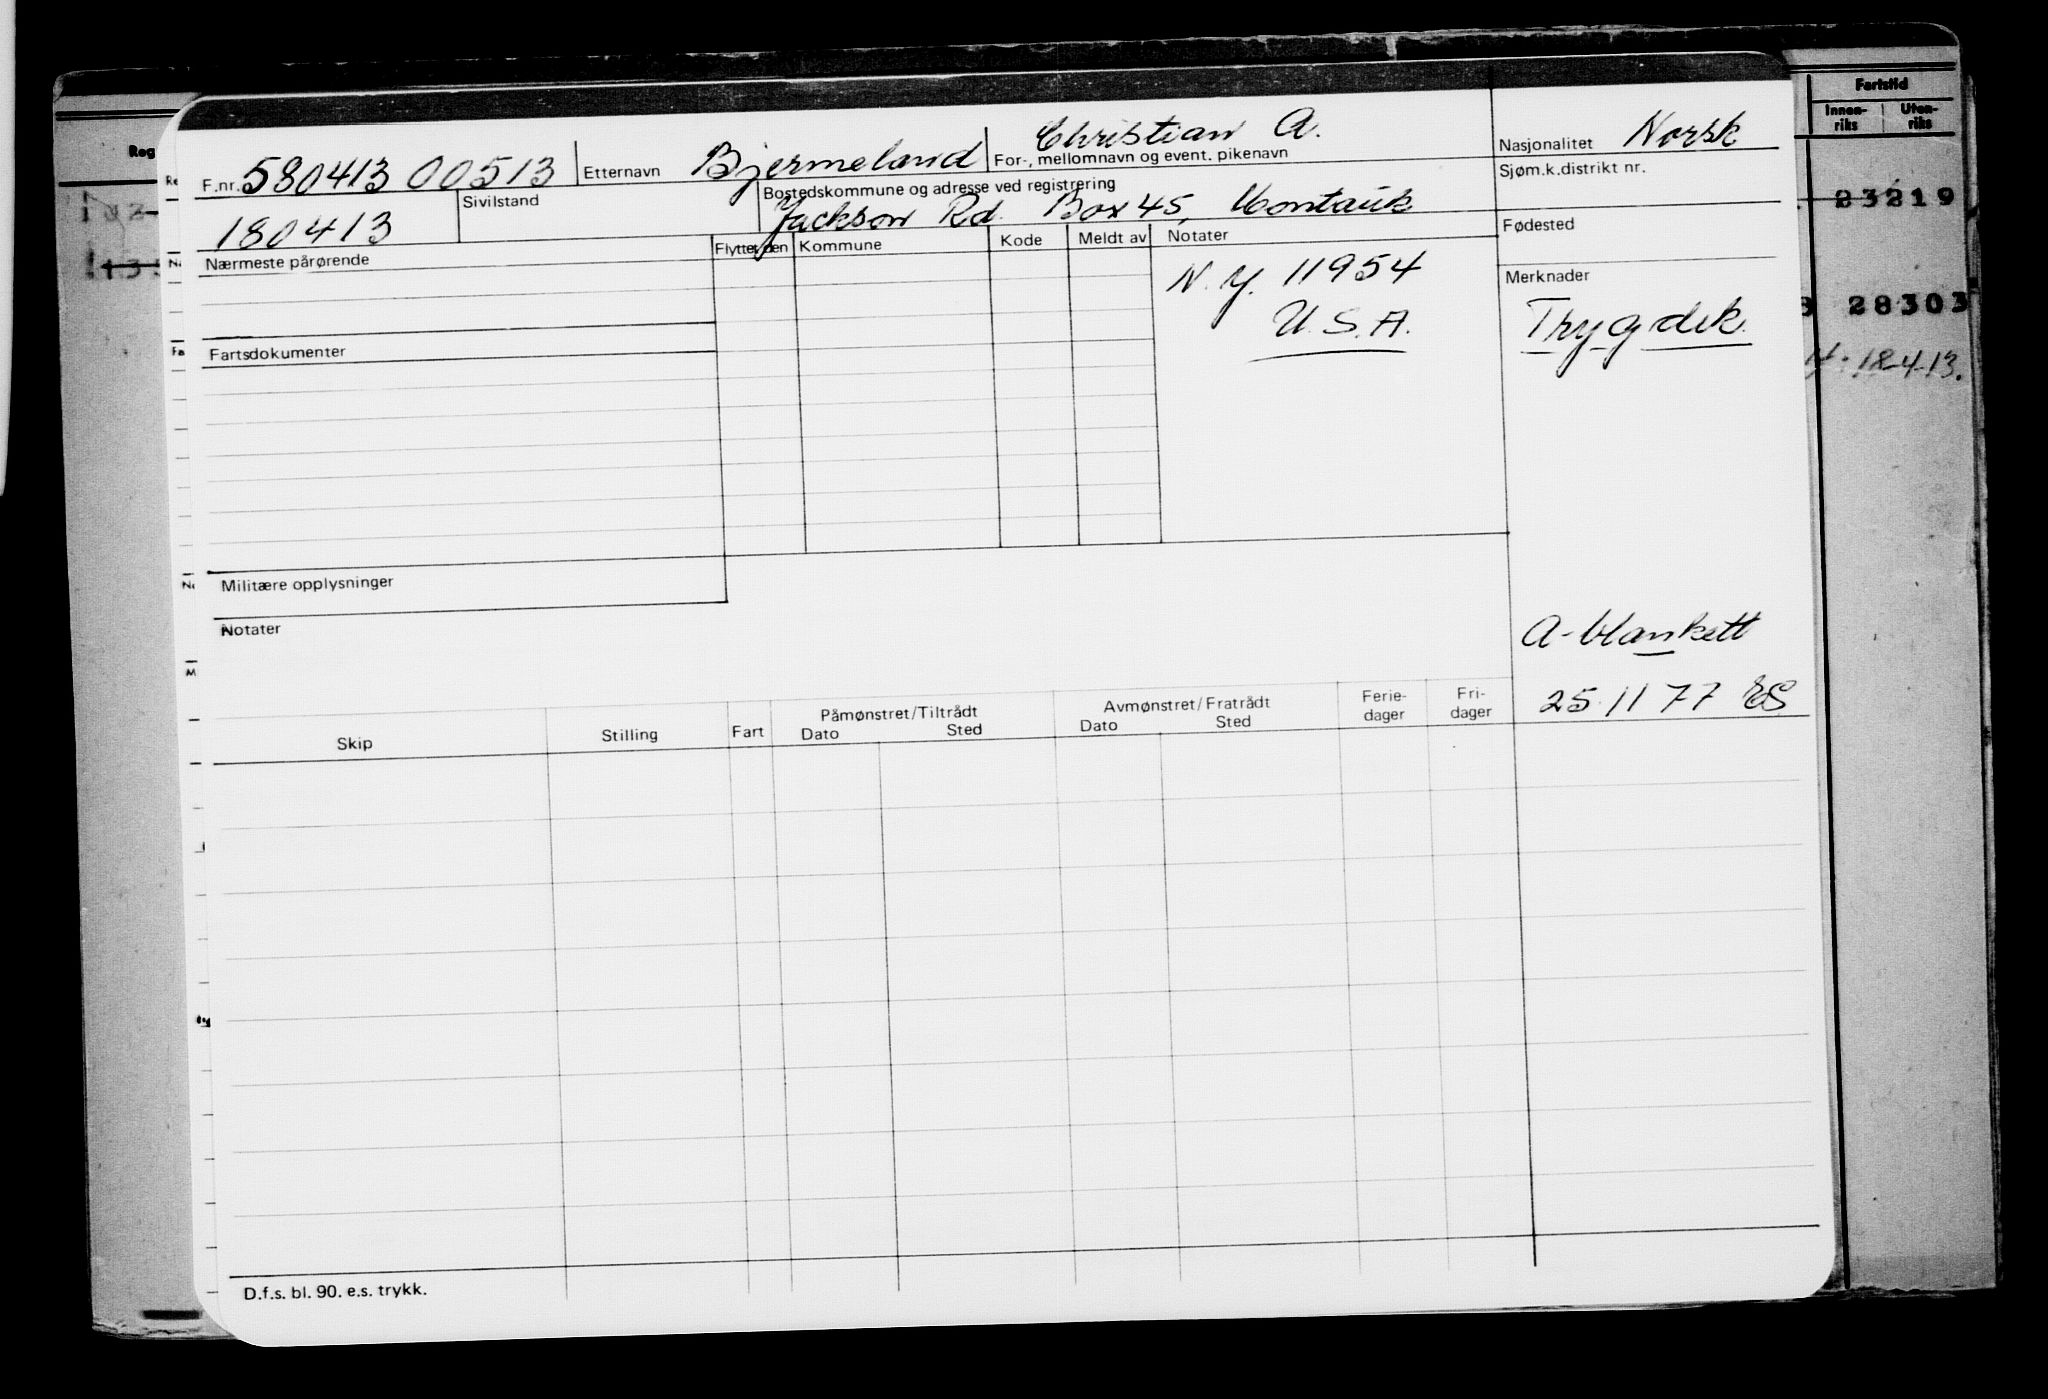 Fartstid
Innen-riks Uten-riks
Reg
F.nr. 580413 00513 Etternavn Bjermeland Christian A. For-, mellomnavn og event. pikenavn Nasjonalitet Norsk
Sjøm.k.distrikt nr.
180413 Sivilstand Bostedskommune og adresse ved registrering
Jackson Rd. Box 45, Montauk
23219
Fødested
Nærmeste pårørende Flyttet den Kommune Kode Meldt av Notater
N.Y. 11954
U.S.A.
Merknader
Trygdek.
28303
18-4-13.
Fartsdokumenter
Militære opplysninger
Notater
A-blankett
25.11 77 ES
Skip Stilling Fart Påmønstret/Tiltrådt Dato Sted Avmønstret/Fratrådt Dato Sted Ferie-dager Fri-dager
D.f.s. bl. 90. e.s. trykk.